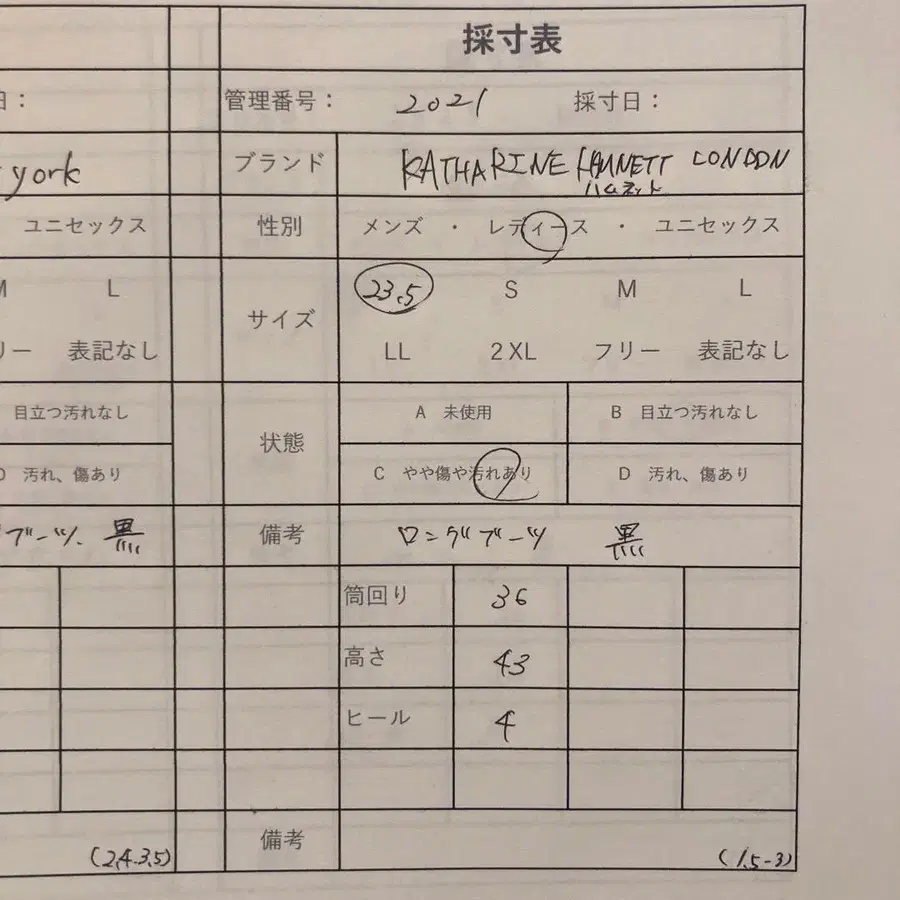 採寸表
日：
管理番号： 2021 採寸日：
york
ブランド KATHARINE HAMNETT LONDON
ハムネット
ユニセックス
性別 メンズ ・ レディース ・ ユニセックス
M L
サイズ 23.5 S M L
リー 表記なし
LL 2XL フリー 表記なし
目立つ汚れなし
状態 A 未使用 B 目立つ汚れなし
D 汚れ、傷あり
C やや傷や汚れあり D 汚れ、傷あり
ブーツ. 黒
備考 ロングブーツ 黒
筒回り 36
高さ 43
ヒール 4
備考
(2,4-3,5)
(1,5-3)